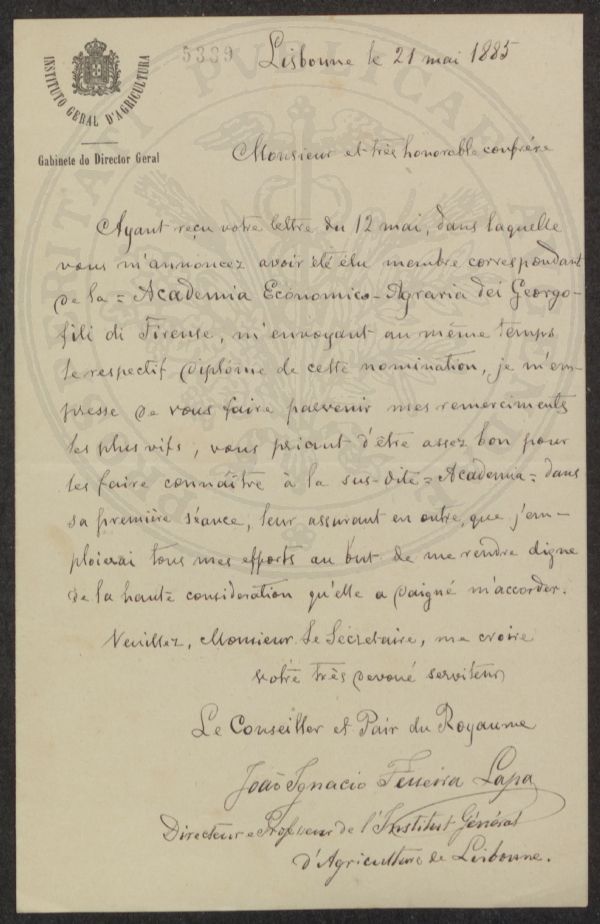 5339
Lisbonne le 21 mai 1885
INSTITUTO GERAL D'AGRICULTURA
Gabinete do Director Geral
Monsieur et très honorable confrère
Ayant reçu votre lettre du 12 mai, dans laquelle
vous m'annoncez avoir été élu membre correspondant
de la = Academia Economico-Agraria dei Georgo-
fili di Firense, m'envoyant au même temps
le respectif diplôme de cette nomination, je m'em-
presse de vous faire parvenir mes remerciments
les plus vifs, vous priant d'être assez bon pour
les faire connaître à la sus-dite = Academia = dans
sa première séance, leur assurant en outre, que j'em-
ploierai tous mes efforts au but de me rendre digne
de la haute consideration qu'elle a daigné m'accorder.
Veuillez, Monsieur Le Sécretaire, me croire
votre très devoué serviteur
Le Conseiller et Pair du Royaume
João Ignacio Ferreira Lapa
Directeur e Professeur de l'Institut Général
d'Agriculture de Lisbonne.